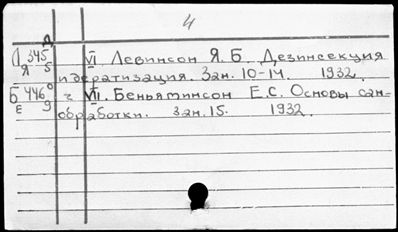 4
Л 345 Д VI. Левинсон Я. Б. Дезинсекция
Я 5 и дератизация. Зан. 10-14. 1932.
Б 446 0 ч VII. Беньяминсон Е.С. Основы сан-
Е 9 обработки. Зан. 15. 1932.